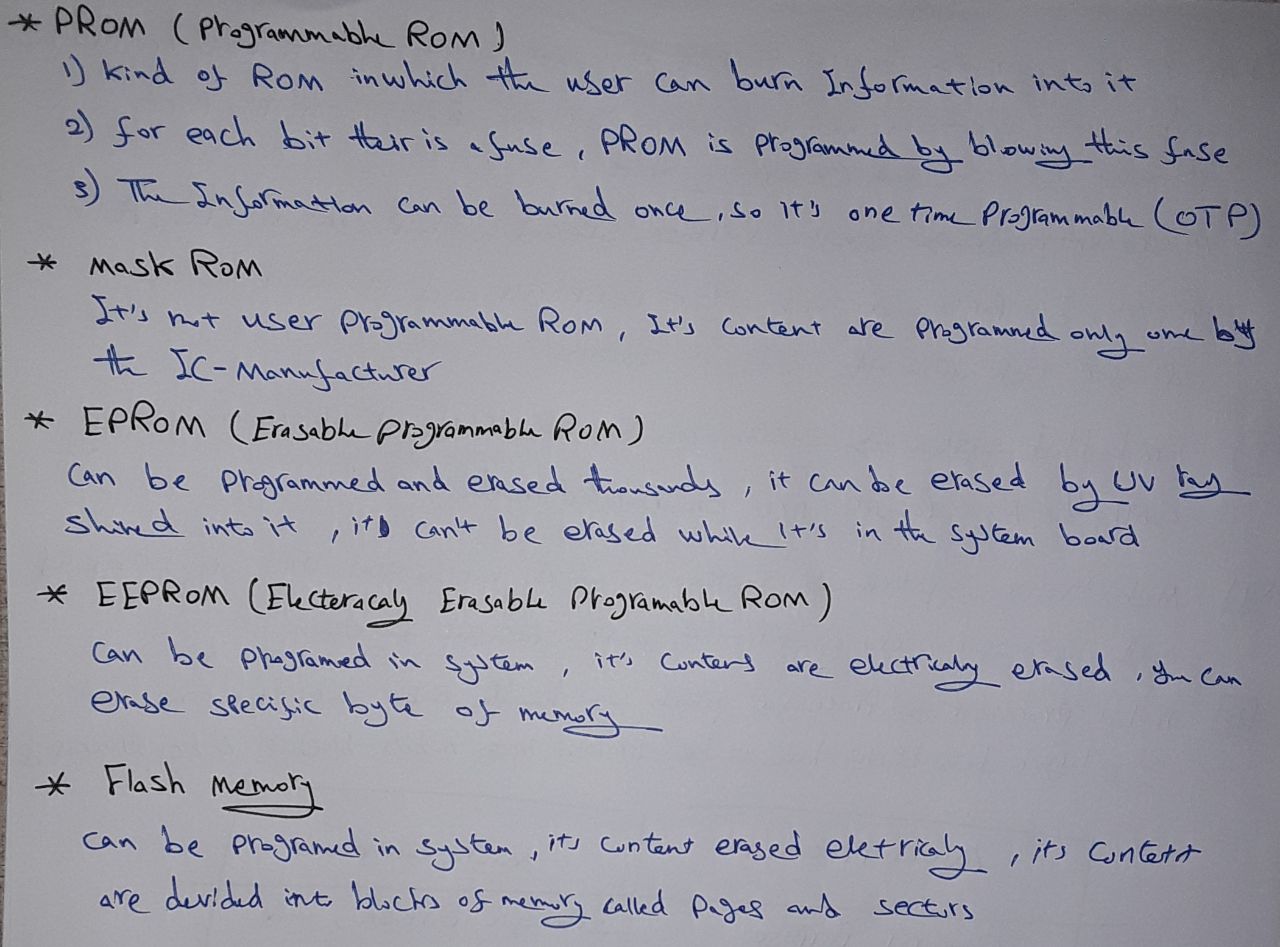 * PROM ( Programmable ROM )
1) Kind of ROM inwhich the user can burn Information into it
2) for each bit their is a fuse , PROM is programmed by blowing this fuse
3) The Information can be burned once , so it's one time Programmable ( OTP )
* Mask ROM
It's not user programmable ROM , It's content are programmed only one by
the IC - Manufacturer
* EPROM ( Erasable programmable ROM )
Can be programmed and erased thousands , it can be erased by UV ray
shined into it , it can't be erased while It's in the system board
* EEPROM ( Electeracaly Erasable Programable ROM )
Can be programed in system , it's contens are electricaly erased , you can
erase specific byte of memory
* Flash memory
can be programed in system , its content erased eletricaly , its content
are devided into blocks of memory called pages and sectors